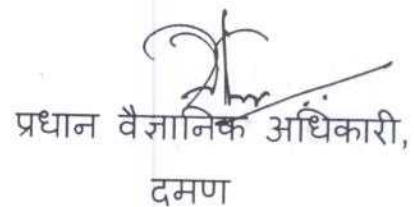 प्रधान वैज्ञानिक अधिकारी,
दमण